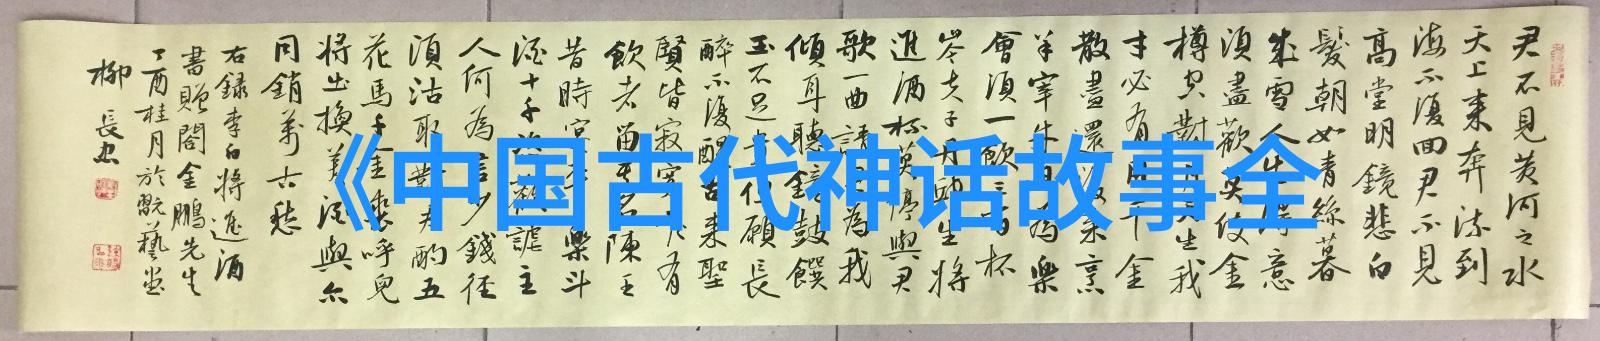 《中国古代神话故事全
君不見黃河之水
天上来奔流到
海不復回君不見
高堂明鏡悲白
髮朝如青絲暮
成雪人生得意
須盡歡莫使金
樽空對月天生我
才必有用千金
散盡還復来烹
羊宰牛且為樂
會須一飲三百杯
岑夫子丹丘生將
進酒杯莫停與君
歌一曲請君為我
傾耳聽鐘鼓饌
玉不足貴但願長
醉不復醒古来聖
賢皆寂寞惟有
飲者留其名陳王
昔時宴平樂斗
酒十千恣歡謔主
人何為言少錢徑
須沽取對君酌五
花馬千金裘呼兒
將出換美酒與尔
同銷萬古愁
右録李白將進酒
書贈閣金鵬先生
丁酉桂月於翫藝堂
柳長忠